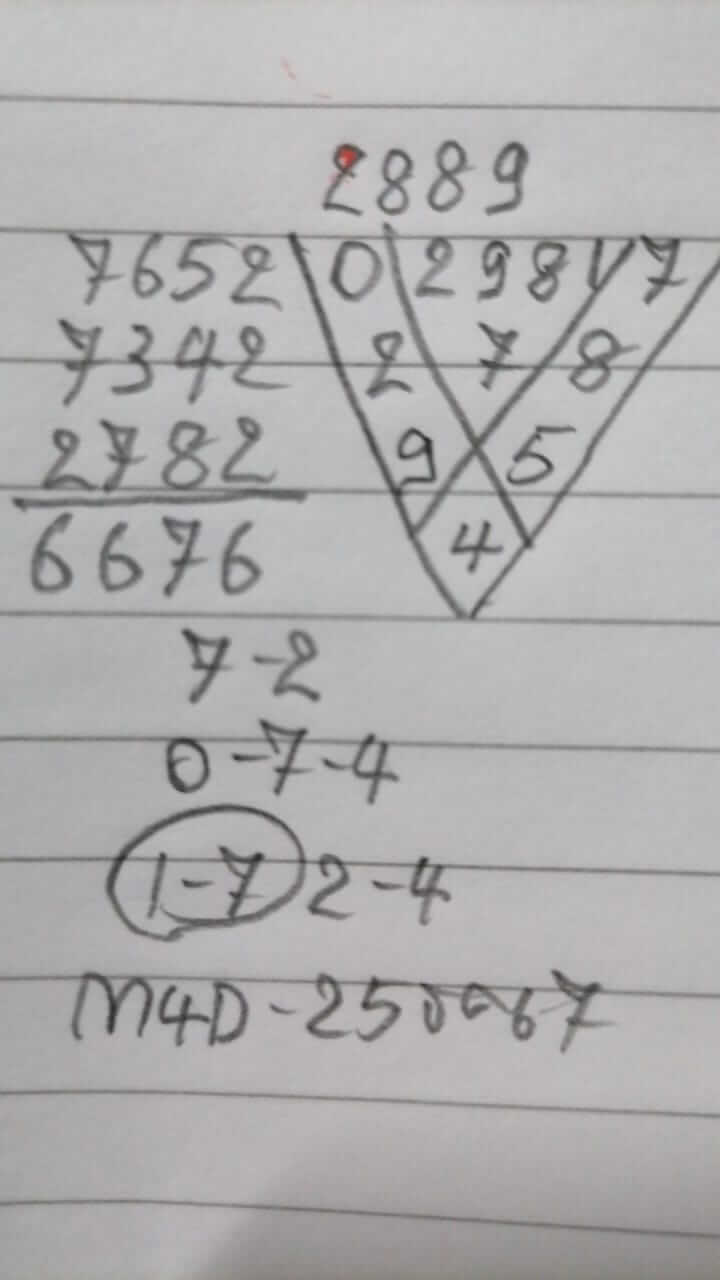 2889
7652 0 298 7
7342 2 7 8
2782 9 5
6676 4
7-2
0-7-4
1-7 2-4